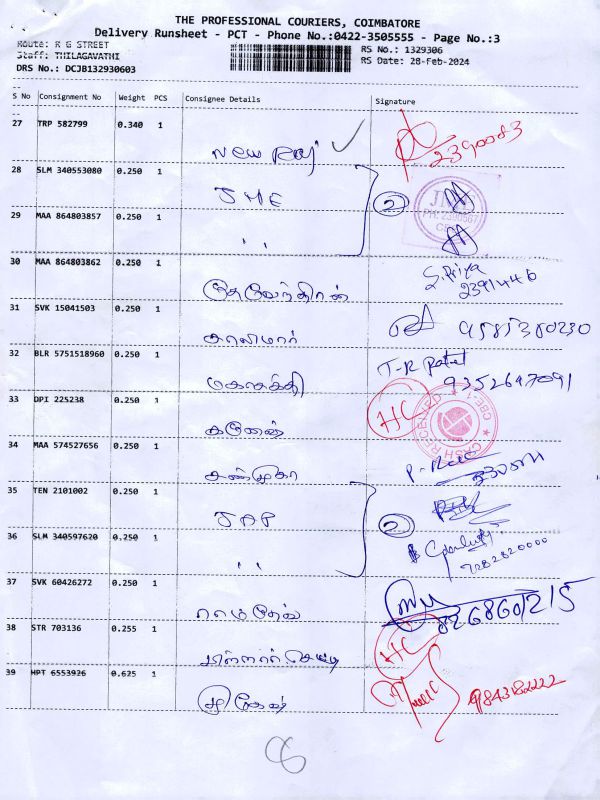 THE PROFESSIONAL COURIERS, COIMBATORE
Delivery Runsheet - PCT - Phone No.:0422-3505555 - Page No.:3
Route: R G STREET
Staff: THILAGAVATHI
DRS No.: DCJB132930603
RS No.: 1329306
RS Date: 28-Feb-2024
S No Consignment No Weight PCS Consignee Details Signature
27 TRP 582799 0.340 1 New Raj 2390083
28 SLM 340553080 0.250 1 JME 2
29 MAA 864803857 0.250 1 ,, PH: 2390567
30 MAA 864803862 0.250 1 தேவேந்திரன் S. Priya 2391446
31 SVK 15041503 0.250 1 சாலிமார் 9585380230
32 BLR 5751518960 0.250 1 மகாசக்தி T-R Patel 9352647091
33 DPI 225238 0.250 1 கணேஷ் HC CASH RECEIVED
34 MAA 574527656 0.250 1 சண்முகா
35 TEN 2101002 0.250 1 2
36 SLM 340597620 0.250 1 ,, 7282820000
37 SVK 60426272 0.250 1 ராமதேவ் 8268601215
38 STR 703136 0.255 1 HC
39 HPT 6553926 0.625 1 9843182222